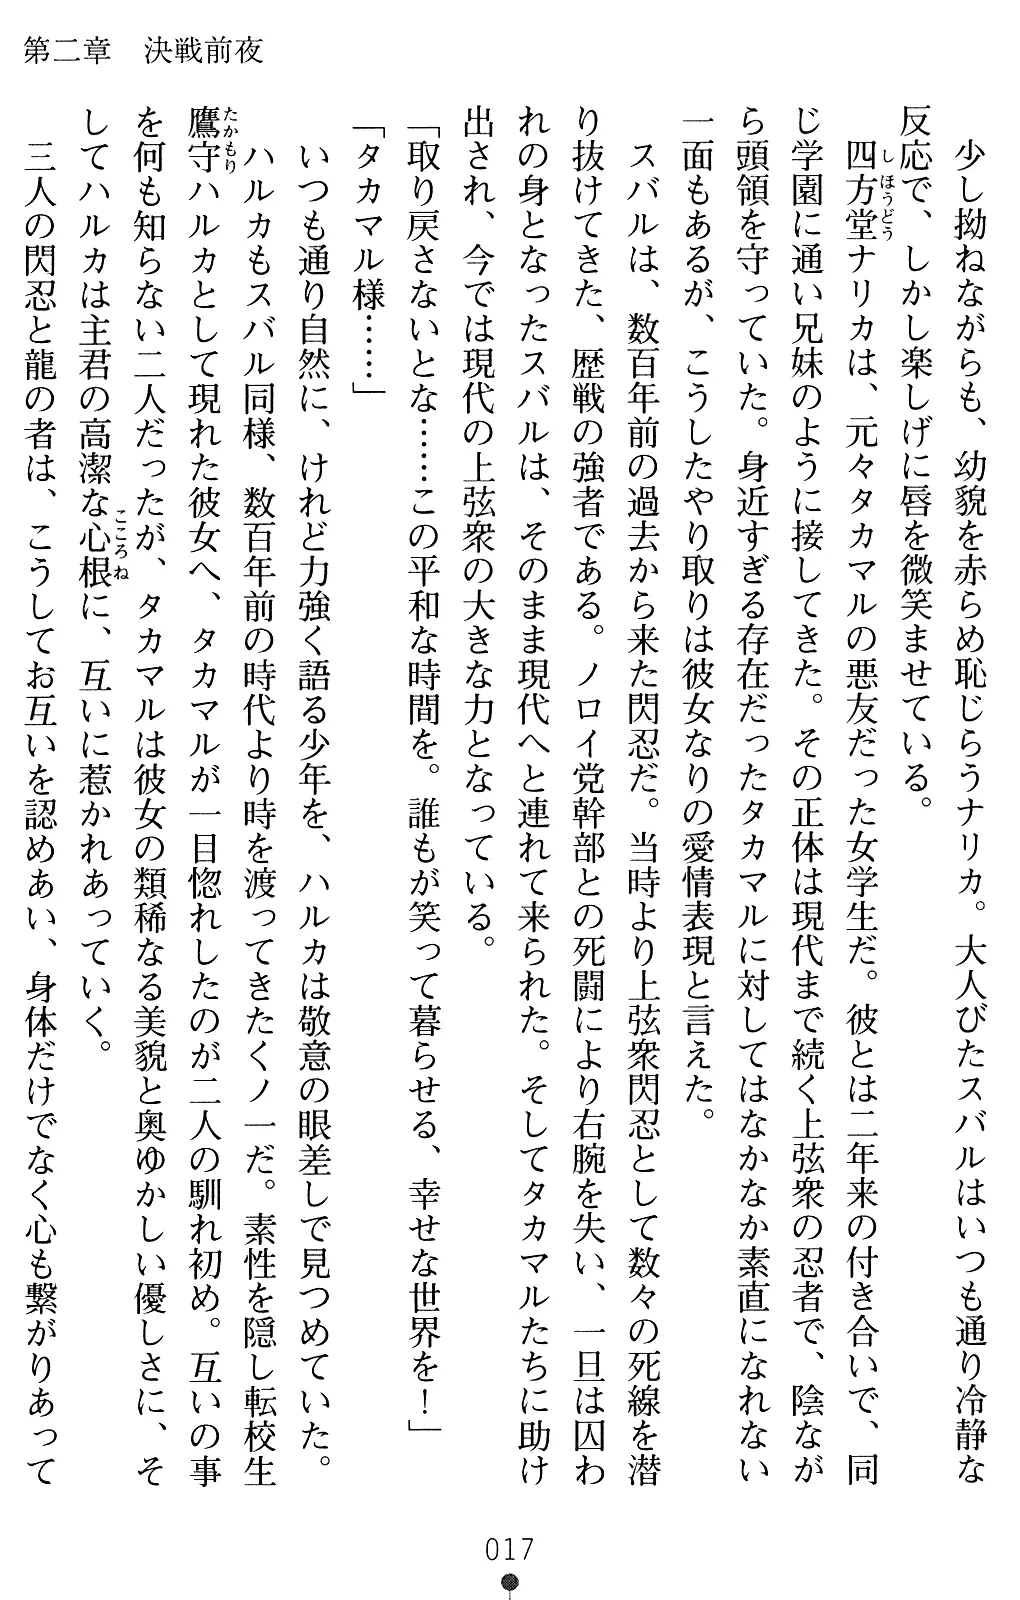 第二章　決戦前夜
　少し拗ねながらも、幼貌を赤らめ恥じらうナリカ。大人びたスバルはいつも通り冷静な
反応で、しかし楽しげに唇を微笑ませている。
　四方堂ナリカは、元々タカマルの悪友だった女学生だ。彼とは二年来の付き合いで、同
じ学園に通い兄妹のように接してきた。その正体は現代まで続く上弦衆の忍者で、陰なが
ら頭領を守っていた。身近すぎる存在だったタカマルに対してはなかなか素直になれない
一面もあるが、こうしたやり取りは彼女なりの愛情表現と言えた。
　スバルは、数百年前の過去から来た閃忍だ。当時より上弦衆閃忍として数々の死線を潜
り抜けてきた、歴戦の強者である。ノロイ党幹部との死闘により右腕を失い、一旦は囚わ
れの身となったスバルは、そのまま現代へと連れて来られた。そしてタカマルたちに助け
出され、今では現代の上弦衆の大きな力となっている。
「取り戻さないとな……この平和な時間を。誰もが笑って暮らせる、幸せな世界を！」
「タカマル様……」
　いつも通り自然に、けれど力強く語る少年を、ハルカは敬意の眼差しで見つめていた。
　ハルカもスバル同様、数百年前の時代より時を渡ってきたくノ一だ。素性を隠し転校生
鷹守ハルカとして現れた彼女へ、タカマルが一目惚れしたのが二人の馴れ初め。互いの事
を何も知らない二人だったが、タカマルは彼女の類稀なる美貌と奥ゆかしい優しさに、そ
してハルカは主君の高潔な心根に、互いに惹かれあっていく。
　三人の閃忍と龍の者は、こうしてお互いを認めあい、身体だけでなく心も繋がりあって
しほうどう
たかもり
こころね
017